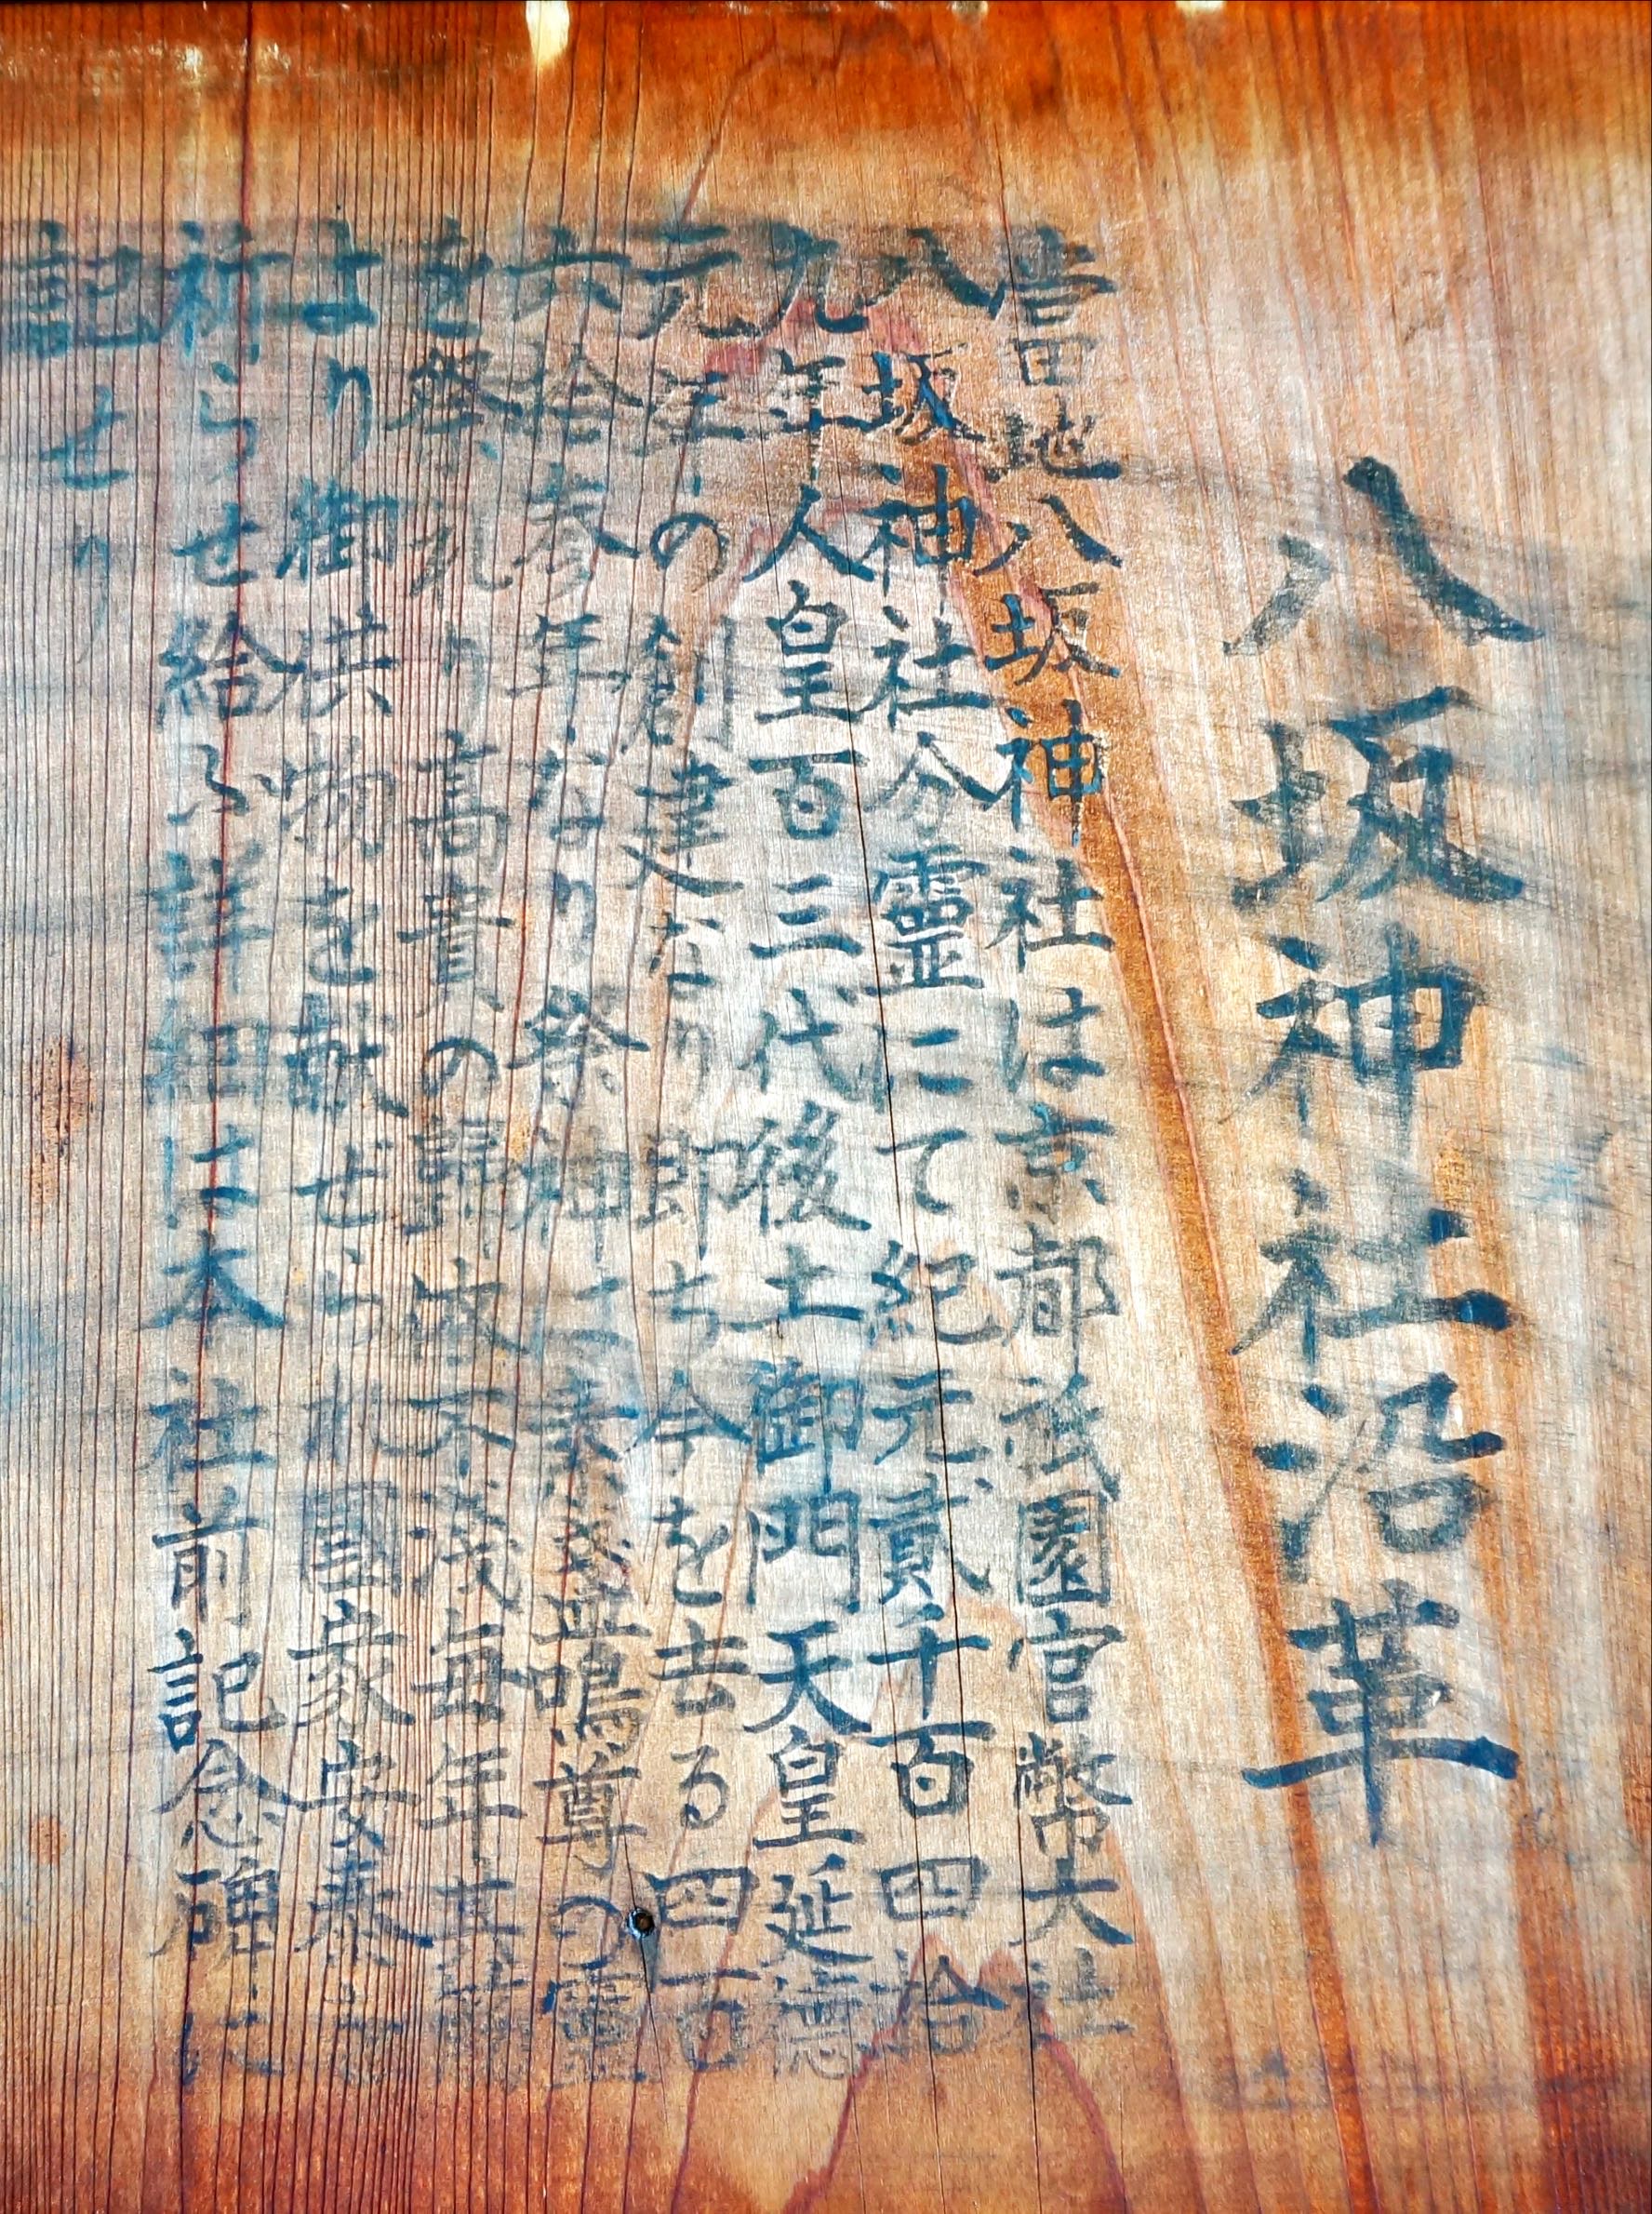 八坂神社沿革
當地八坂神社は京都祇園官幣大社
八坂神社分靈にて紀元貳千百四拾
九年人皇百三代後土御門天皇延德
元年の創建なり即ち今を去る四百
六拾参年なり祭神に素盞嗚尊の靈
を祭れり高貴の歸依不淺毎年其
より御供物を献ぜられ國家安泰を
祈らせ給ふ詳細は本社前記念碑に
記せり